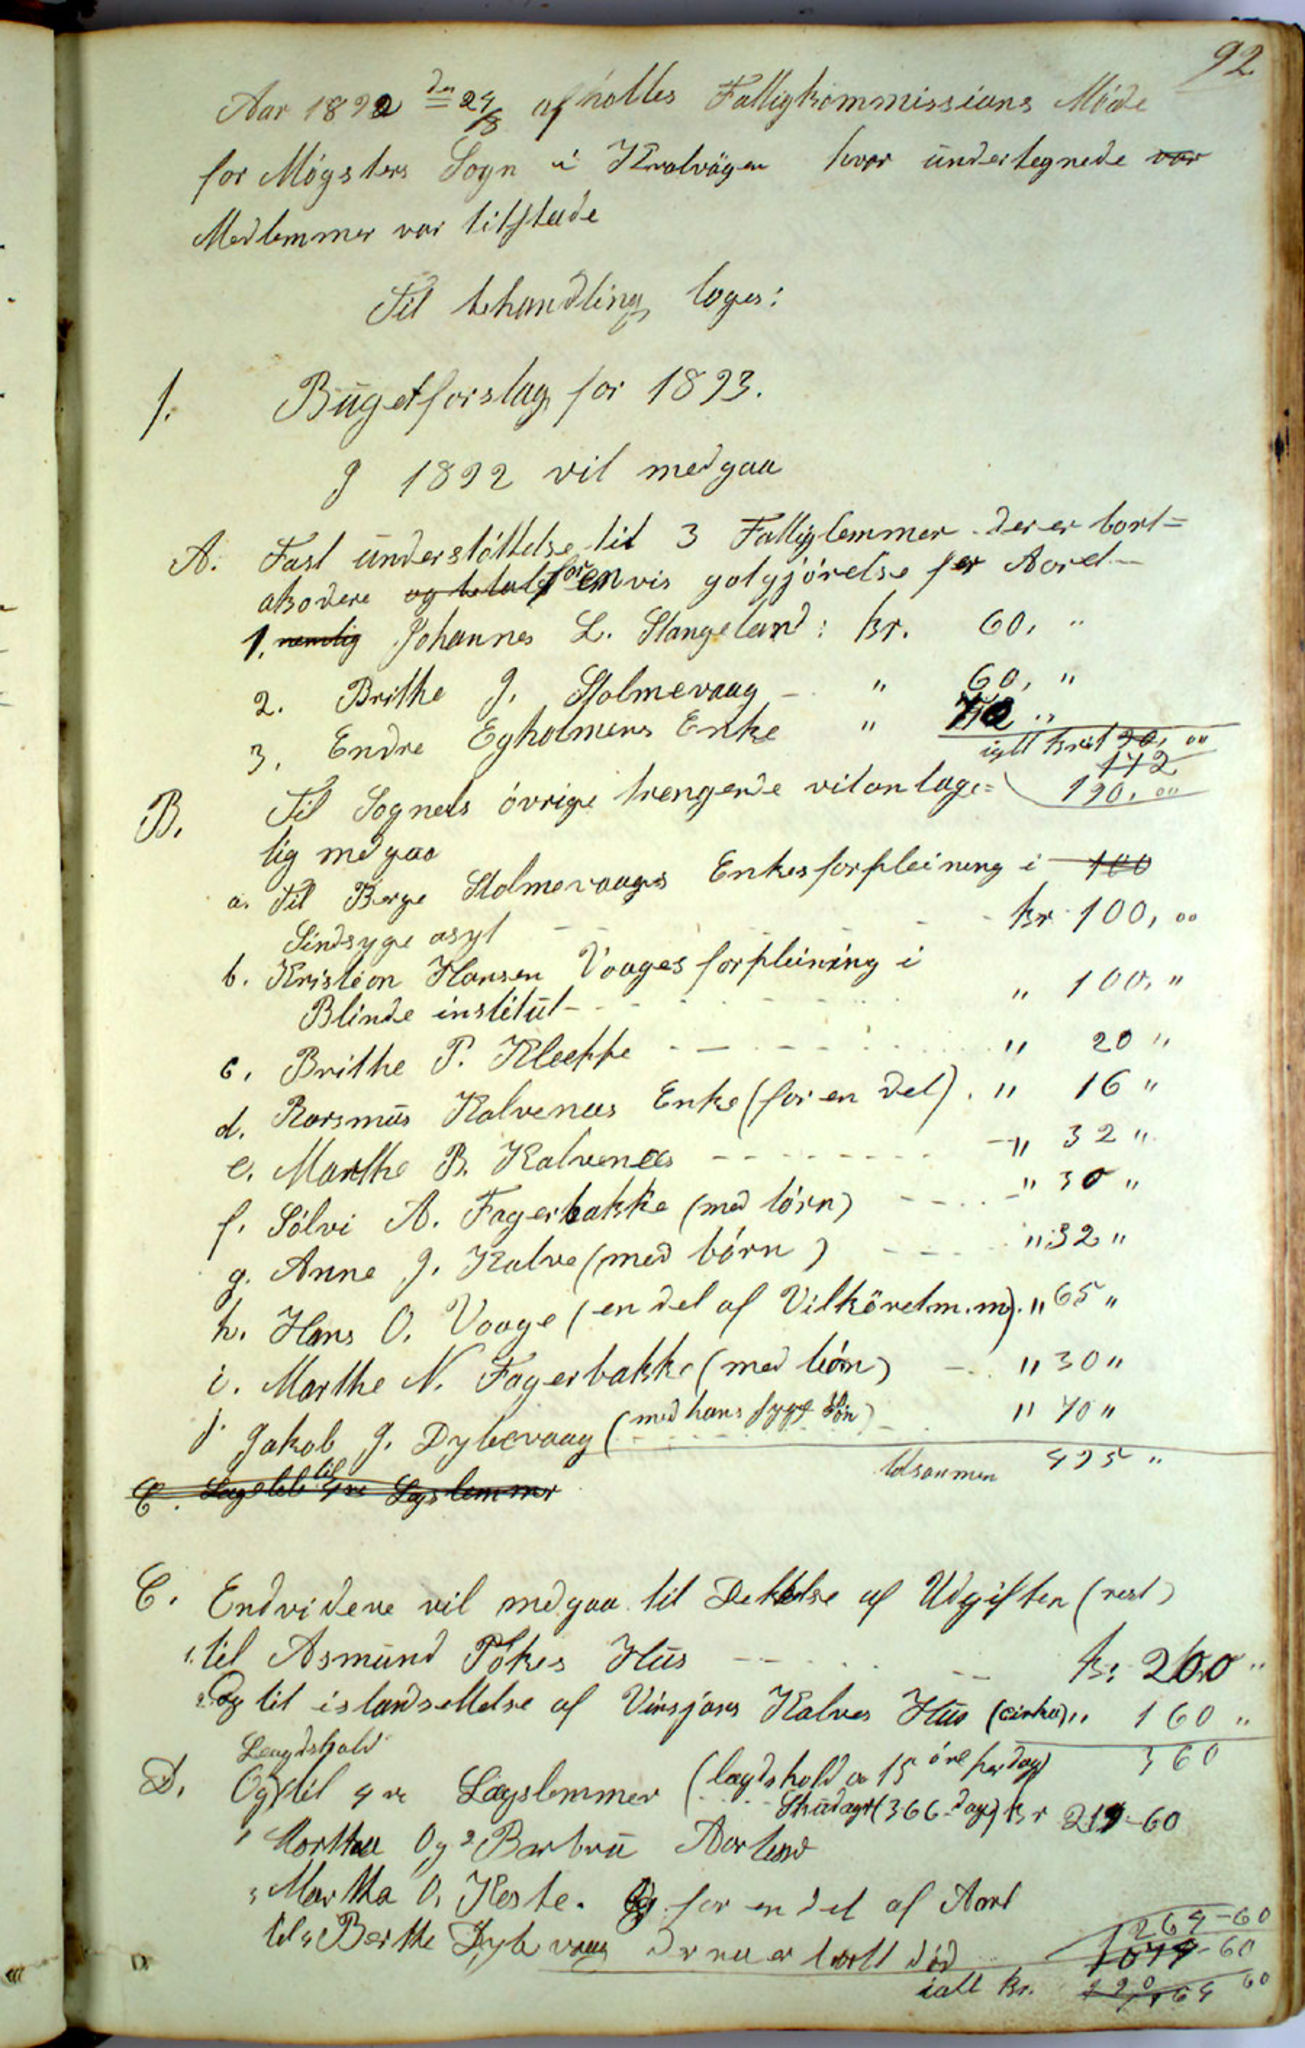 92
Aar 1892 den 24/8 afholtes Fattigkommissions Møde
for Møgsters Sogn i Kvalvågen hvor undertegnede var
Medlemmer var tilstade
Til behandling toges:
1. Bugetforslag for 1893.
I 1892 vil medgaa
A. Fast understøttelse til 3 Fattiglemmer der er bort=
akordere og betalt for en vis godgjørelse for Aaret
1. nemlig Johannes L. Stangeland: kr. 60, "
2. Brithe J. Stolmevaag " 60, "
3. Endre Egholmens Enke " "
ialt kr
172
190, 00
B. Til Sognets övrige trengende vil antage=
lig medgaa
a. Til Berge Stolmevaags Enkes forpleining i 100
Sindsyge asyl - - - kr. 100, 00
b. Kristian Hansen Vaages forpleining i
Blinde institut - - - " 100, "
c. Brithe P. Kleppe - - - " 20 "
d. Rasmus Kalvenes Enke (for en del). " 16 "
e. Marthe B. Kalvenes - - - " 32 "
f. Sølvi A. Fagerbakke (med børn) - - - " 30 "
g. Anne J. Kalve (med børn) - - - " 32 "
h. Hans O. Vaage (en del af Vilköret m.m). " 65 "
i. Marthe N. Fagerbakke (med børn) - " 30 "
j. Jakob J. Dybevaag (med hans syge Søn) " 70 "
tilsammen 495 "
C. til Lægslemmer
C. Endvidere vil medgaa til Dekkelse af Udgifter (rest)
1. til Asmund Pökes Hus - - - kr. 200 "
2. Og til istandsettelse af Vinsjans Kalves Hus (cirka) " 160 "
360
Lægdshold
D. Og til 4 re Lægslemmer (lægdshold a 15 öre per dag)
Skudaar (366 dage) kr 219-60
1 Martha Og 2 Barbru Aarland
3 Martha O. Koste. Og for en del af Aaret
til 4 Berthe Dybevaag der nu er død
264-60
1079-60
ialt kr.